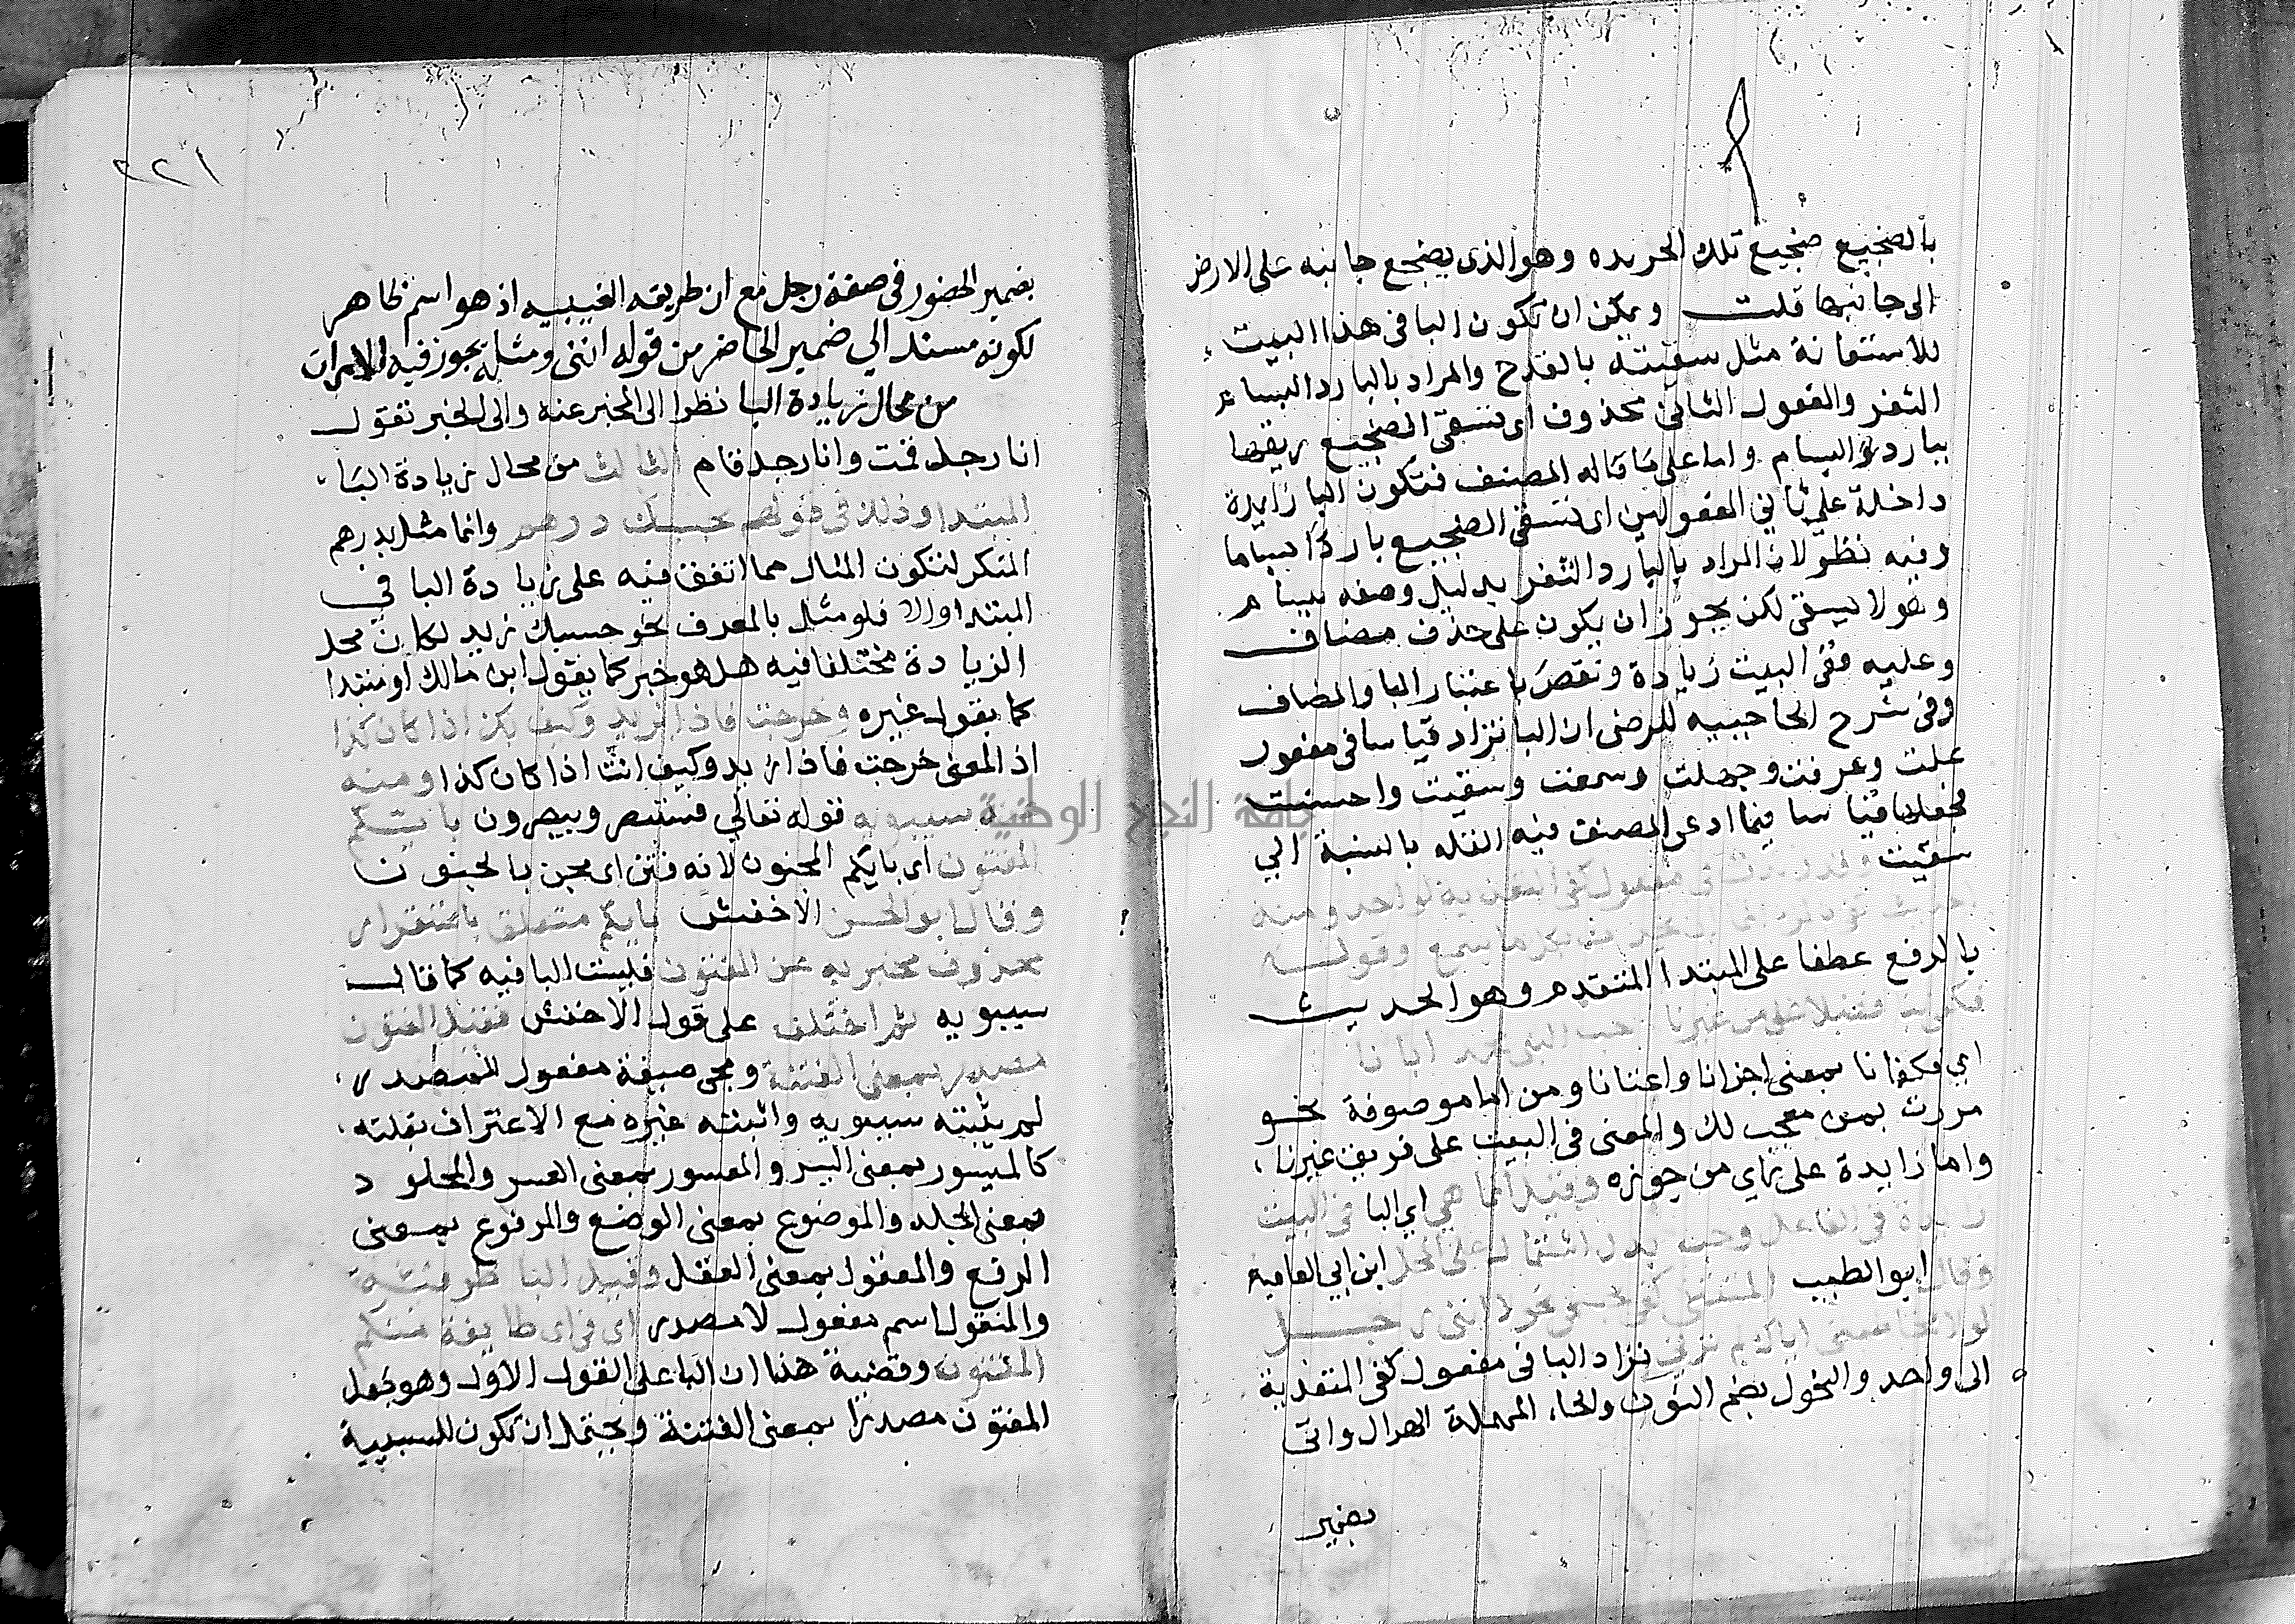 بالضجيع ضجيع تلك الخريده وهو الذى يضجع جانبه على الارض
الى جانبها قلت ويمكن ان تكون البا فى هذا البيت
للاستعانة مثل سقيته بالقدح والمراد بالبارد البسام
الثغر والمفعول الثانى محذوف اى تسقى الضجيع ريقها
ببارد بسام واما على ما قاله المصنف فتكون البا زايدة
داخلة على ثانى المفعولين اى تسقى الضجيع باردا بساما
وفيه نظر لان المراد بالبارد الثغر بدليل وصفه ببسام
وهو لا يسقى لكن يجوز ان يكون على حذف مضاف
وعليه ففى البيت زيادة ونقص باعتبار البا والمضاف
وفى شرح الحاجبيه للرضى ان البا تزاد قياسا فى مفعول
علمت وعرفت وجهلت وسمعت وسقيت واحسنت
فجعلها قياسا فيما ادعى المصنف فيه القله بالنسبة الي
سقيت وقد زيدت فى مفعول كفى المتعديه لواحد ومنه
الحديث كفى بالمرء ان يحدث بكل ما سمع وقوله
بالرفع عطفا على المبتدا المتقدم وهو الحديث
فكفى بنا فضلا على من غيرنا حب النبى محمد ايانا
اي فكفانا بمعنى اجزانا واغنانا ومن اما موصوفة نحو
مررت بمن معجب لك والمعنى فى البيت على فريق غيرنا
واما زايدة على راي من جوزه وقيل انما هي اي البا فى البيت
زايدة فى الفاعل وحب بدل اشتمال على المحل ابن ابى العافية
وقال ابو الطيب المتنبى كفى بجسمى نحولا اننى رجل
لولا مخاطبتى اياك لم ترنى تزاد البا فى مفعول كفى المتعدية
الى واحد والنحول بضم النون والحاء المهملة الهزال واتى
بضمير
٢٢١
بضمير الحضور فى صفة رجل مع ان طريقه الغيبيه اذ هو اسم ظاهر
لكونه مسند الي ضمير الحاضر من قوله اننى ومثله يجوز فيه الامران
من محال زيادة البا نظرا الى المخبر عنه والى الخبر تقول
انا رجل قمت وانا رجل قام الثالث من محال زيادة البا
المبتدا وذلك فى قولهم بحسبك درهم وانما مثل بدرهم
المنكر لتكون المثال مما اتفق فيه على زيادة البا في
المبتدا اولا فلو مثل بالمعرف نحو حسبك زيد لكان محل
الزيادة مختلفا فيه هل هو خبر كما يقول ابن مالك او مبتدا
كما يقول غيره وخرجت فاذا بزيد وكيف بك اذا كان كذا
اذ المعنى خرجت فاذا زيد وكيف انت اذا كان كذا ومنه
عند سيبويه قوله تعالي فستبصر ويبصرون بايكم
المفتون اى بايكم المجنون لانه فتن اى مجن بالجنون
وقال ابو الحسن الاخفش بايكم متعلق باستقرار
محذوف مخبر به عن المفتون فليست البا فيه كما قال
سيبويه ثم اختلف على قول الاخفش فقيل المفتون
مصدر بمعنى الفتنة ومجى صيغة مفعول للمصدر
لم يثبته سيبويه واثبته غيره مع الاعتراف بقلته
كالميسور بمعنى اليسر والمعسور بمعنى العسر والمجلود
بمعنى الجلد والموضوع بمعنى الوضع والمرفوع بمعنى
الرفع والمعقول بمعنى العقل وقيل البا ظرفيته
والمفتون اسم مفعول لا مصدر اى فى اى طايفة منكم
المفتون وقضية هذا ان البا على القول الاول وهو جعل
المفتون مصدرا بمعنى الفتنة ويحتمل ان تكون للسببية
جامعة النجاح الوطنية